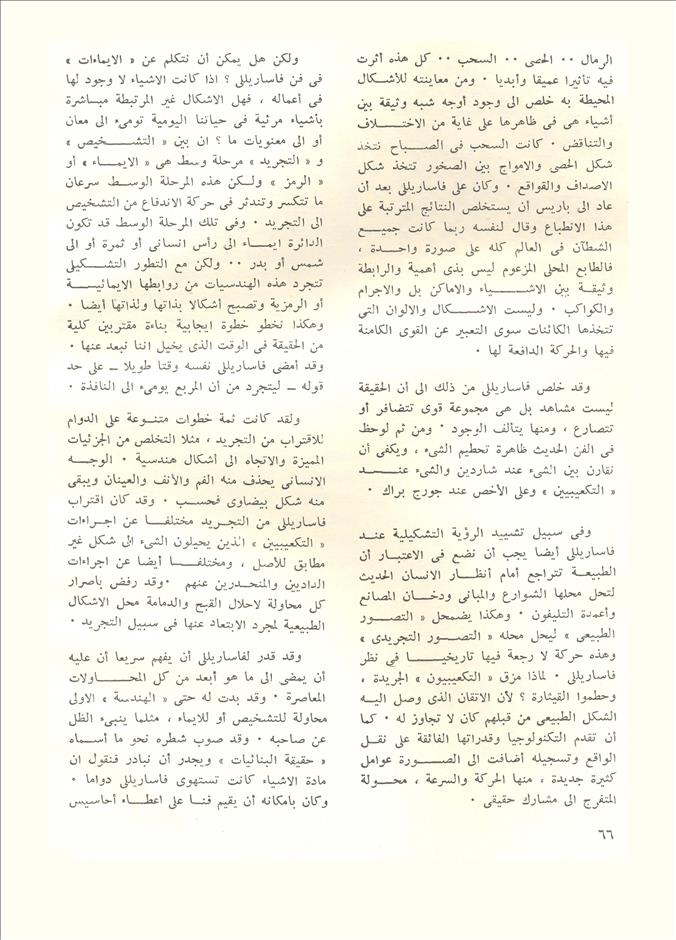 الرمال ٠٠ الحصى ٠٠ السحب ٠٠ كل هذه أثرت
فيه تأثيرا عميقا وأبديا ٠ ومن معاينته للأشكال
المحيطة به خلص الى وجود أوجه شبه وثيقة بين
أشياء هى فى ظاهرها على غاية من الاختلاف
والتناقض ٠ كانت السحب فى الصباح تتخذ
شكل الحصى والامواج بين الصخور تتخذ شكل
الاصداف والقواقع ٠ وكان على فاساريللى بعد أن
عاد الى باريس أن يستخلص النتائج المترتبة على
هذا الانطباع وقال لنفسه ربما كانت جميع
الشطآن فى العالم كله على صورة واحدة ،
فالطابع المحلى المزعوم ليس بذى أهمية والرابطة
وثيقة بين الاشياء والاماكن بل والاجرام
والكواكب ٠ وليست الاشكال والالوان التى
تتخذها الكائنات سوى التعبير عن القوى الكامنة
فيها والحركة الدافعة لها ٠
وقد خلص فاساريللى من ذلك الى أن الحقيقة
ليست مشاهد بل هى مجموعة قوى تتضافر أو
تتصارع ، ومنها يتألف الوجود ٠ ومن ثم لوحظ
فى الفن الحديث ظاهرة تحطيم الشىء ، ويكفى أن
نقارن بين الشىء عند شاردين والشىء عند
« التكعيبيين » وعلى الأخص عند جورج براك ٠
وفى سبيل تشييد الرؤية التشكيلية عند
فاساريللى أيضا يجب أن نضع فى الاعتبار أن
الطبيعة تتراجع أمام أنظار الانسان الحديث
لتحل محلها الشوارع والمبانى ودخان المصانع
وأعمدة التليفون ٠ وهكذا يضمحل « التصور
الطبيعى » ليحل محله « التصور التجريدى »
وهذه حركة لا رجعة فيها تاريخيا فى نظر
فاساريللى ٠ لماذا مزق « التكعيبيون » الجريدة ،
وحطموا القيثارة ؟ لأن الاتقان الذى وصل اليه
الشكل الطبيعى من قبلهم كان لا تجاوز له ٠ كما
أن تقدم التكنولوجيا وقدراتها الفائقة على نقل
الواقع وتسجيله أضافت الى الصورة عوامل
كثيرة جديدة ، منها الحركة والسرعة ، محولة
المتفرج الى مشارك حقيقى ٠
ولكن هل يمكن أن نتكلم عن « الايماءات »
فى فن فاساريللى ؟ اذا كانت الاشياء لا وجود لها
فى أعماله ، فهل الاشكال غير المرتبطة مباشرة
بأشياء مرئية فى حياتنا اليومية تومىء الى معان
أو الى معنويات ما ؟ ان بين « التشخيص »
و « التجريد » مرحلة وسط هى « الايماء » أو
« الرمز » ولكن هذه المرحلة الوسط سرعان
ما تتكسر وتندثر فى حركة الاندفاع من التشخيص
الى التجريد ٠ وفى تلك المرحلة الوسط قد تكون
الدائرة ايماء الى رأس انسانى أو ثمرة أو الى
شمس أو بدر ٠٠ ولكن مع التطور التشكيلى
تتجرد هذه الهندسيات من روابطها الايمائية
أو الرمزية وتصبح أشكالا بذاتها ولذاتها أيضا ٠
وهكذا نخطو خطوة ايجابية بناءة مقتربين كلية
من الحقيقة فى الوقت الذى يخيل اننا نبعد عنها ٠
وقد أمضى فاساريللى نفسه وقتا طويلا ــ على حد
قوله ــ ليتجرد من أن المربع يومىء الى النافذة ٠
ولقد كانت ثمة خطوات متنوعة على الدوام
للاقتراب من التجريد ، مثلا التخلص من الجزئيات
المميزة والاتجاه الى أشكال هندسية ٠ الوجه
الانسانى يحذف منه الفم والأنف والعينان ويبقى
منه شكل بيضاوى فحسب ٠ وقد كان اقتراب
فاساريللى من التجريد مختلفا عن اجراءات
« التكعيبيين » الذين يحيلون الشىء الى شكل غير
مطابق للأصل ، ومختلفا أيضا عن اجراءات
الداديين والمنحدرين عنهم ٠ وقد رفض باصرار
كل محاولة لاحلال القبح والدمامة محل الاشكال
الطبيعية لمجرد الابتعاد عنها فى سبيل التجريد ٠
وقد قدر لفاساريللى أن يفهم سريعا أن عليه
أن يمضى الى ما هو أبعد من كل المحاولات
المعاصرة ٠ وقد بدت له حتى « الهندسة » الاولى
محاولة للتشخيص أو للايماء ، مثلما ينبىء الظل
عن صاحبه ٠ وقد صوب شطره نحو ما أسماه
« حقيقة البنائيات » ويجدر أن نبادر فنقول ان
مادة الاشياء كانت تستهوى فاساريللى دواما ٠
وكان بامكانه أن يقيم فنا على اعطاء أحاسيس
٦٦